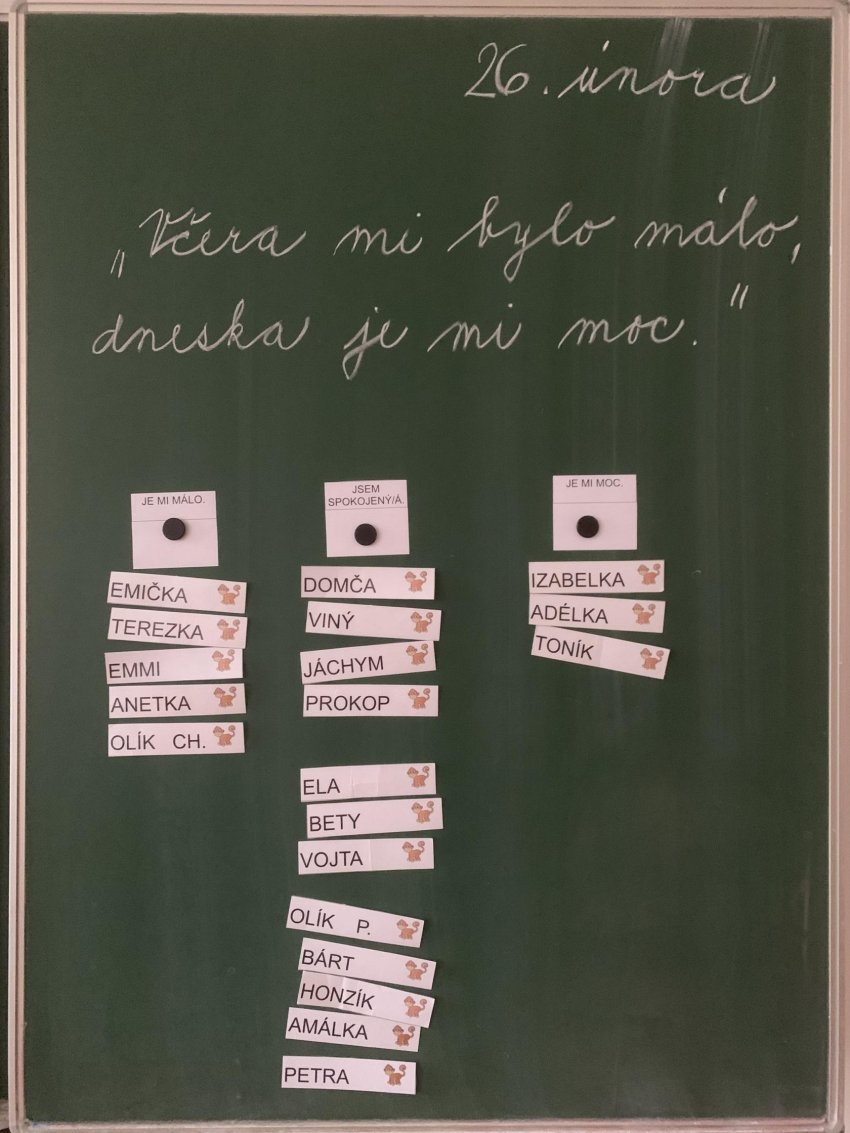 26. února
„Včera mi bylo málo,
dneska je mi moc."
JE MI MÁLO.
EMIČKA
TEREZKA
EMMI
ANETKA
OLÍK CH.
JSEM
SPOKOJENÝ/Á.
DOMČA
VINÝ
JÁCHYM
PROKOP
ELA
BETY
VOJTA
OLÍK P.
BÁRT
HONZÍK
AMÁLKA
PETRA
JE MI MOC.
IZABELKA
ADÉLKA
TONÍK